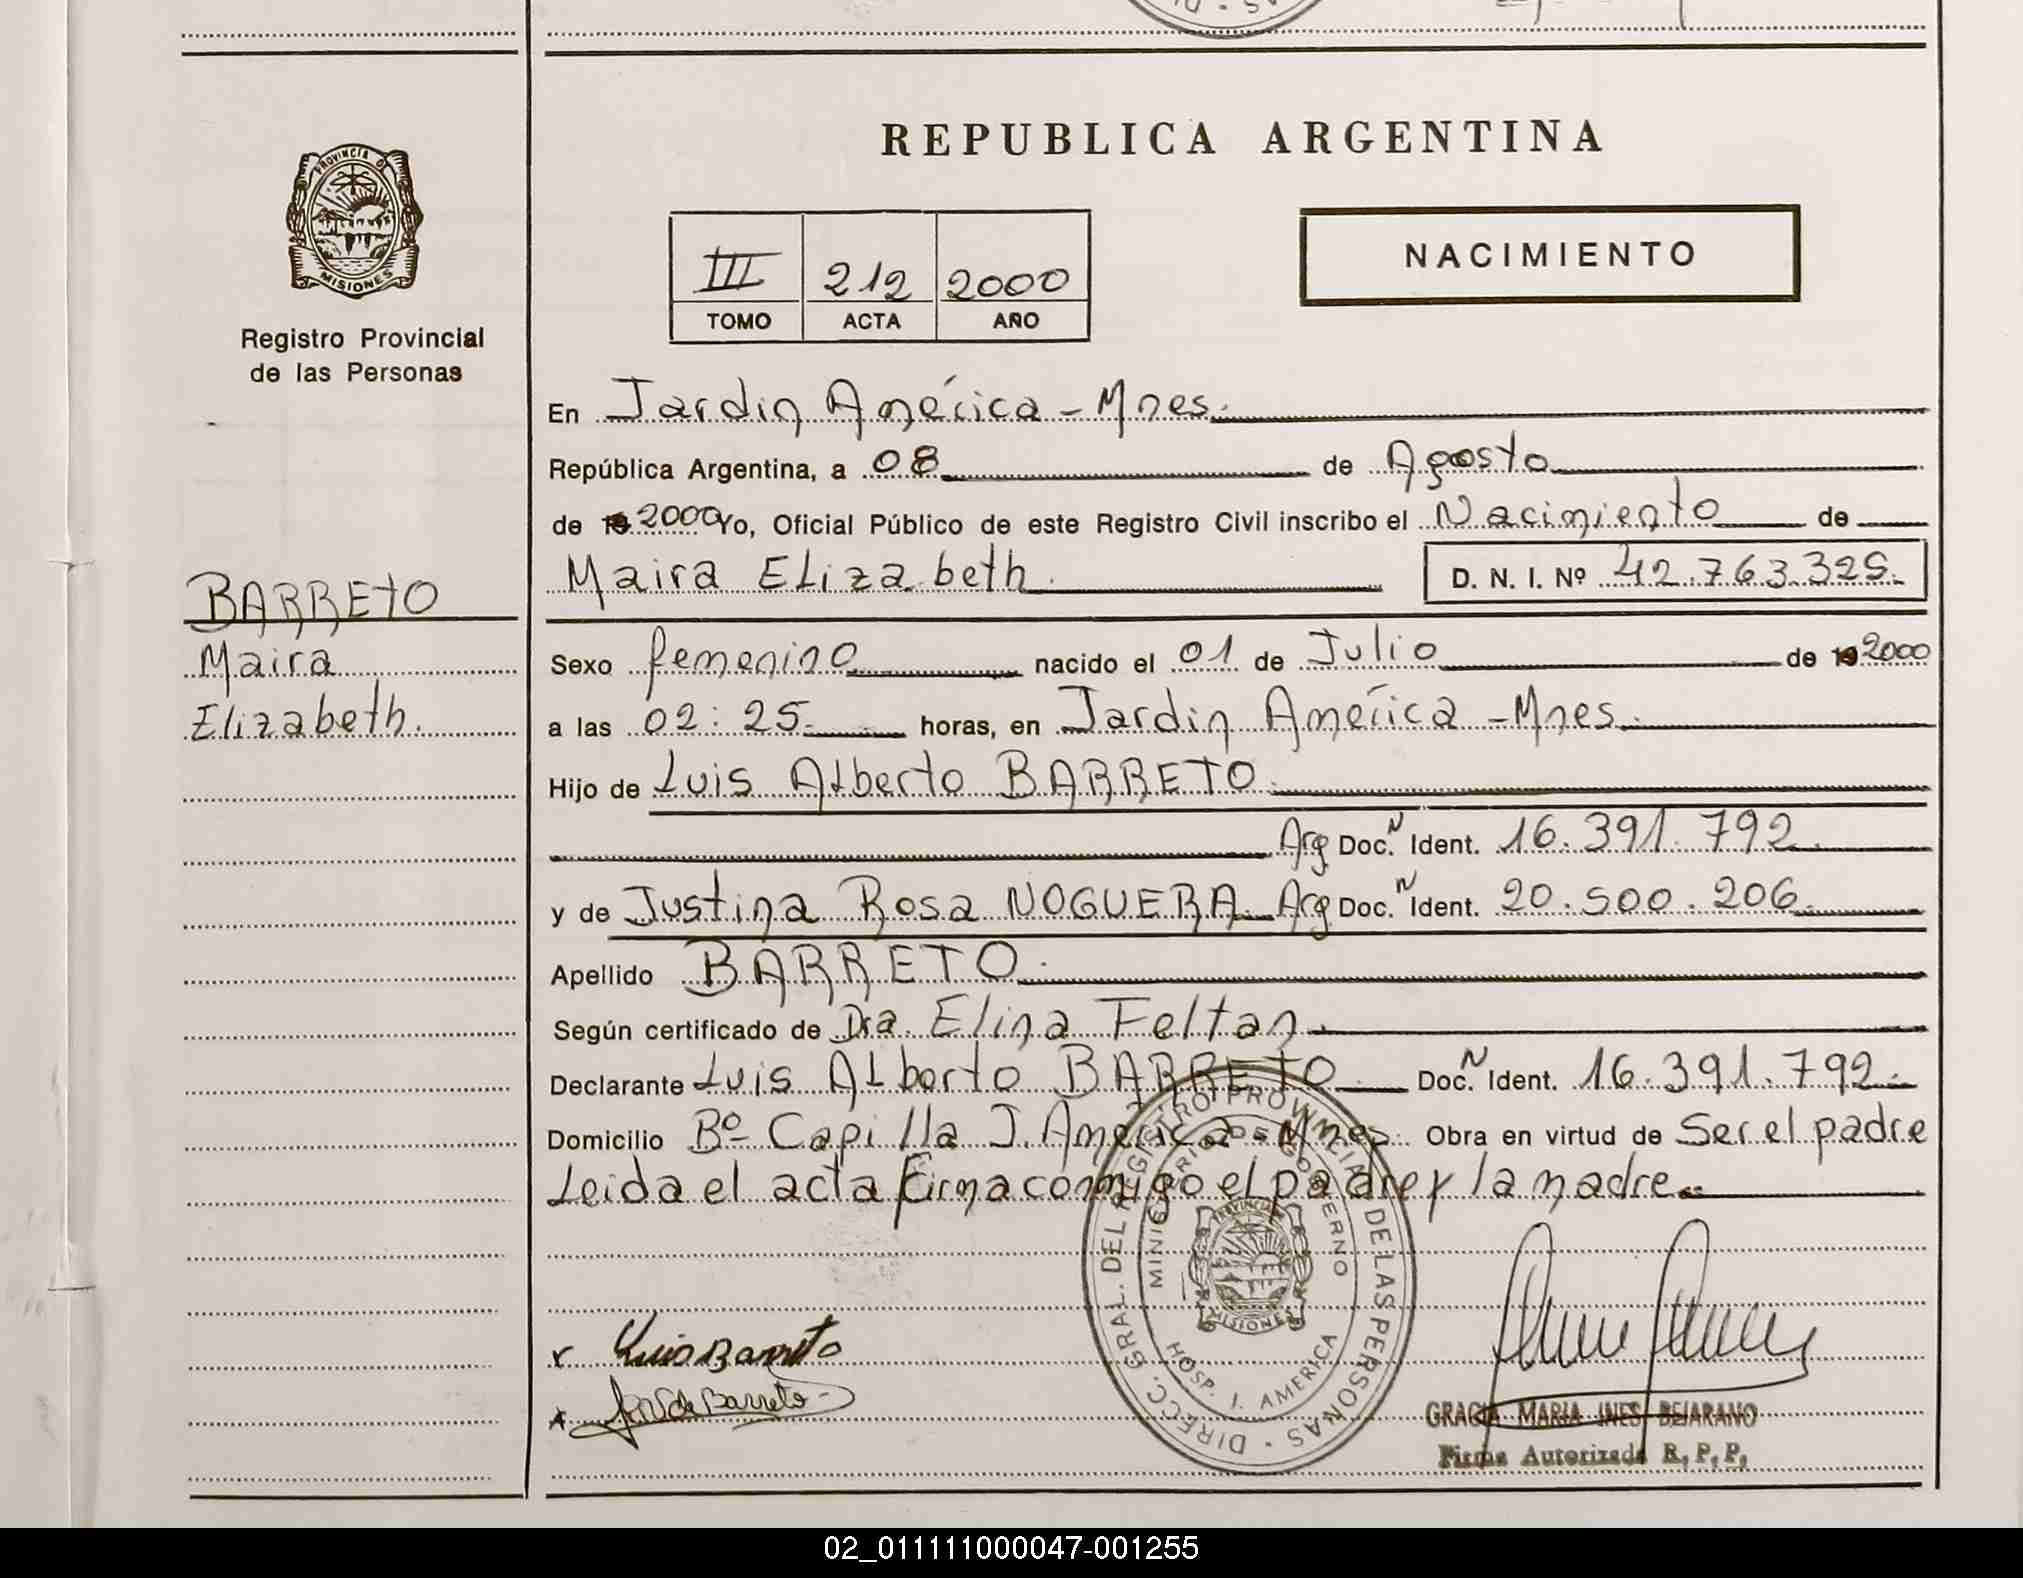 REPUBLICA ARGENTINA
PROVINCIA DE
MISIONES
Registro Provincial
de las Personas
NACIMIENTO
III 212 2000
TOMO ACTA AÑO
En Jardin América - Mnes.
República Argentina, a 08 de Agosto
de 19 2000 Yo, Oficial Público de este Registro Civil inscribo el Nacimiento de
Maira Elizabeth. D. N. I. Nº 42.763.325.
BARRETO
Maira
Elizabeth.
Sexo femenino nacido el 01 de Julio de 19 2000
a las 02:25 horas, en Jardin América - Mnes.
Hijo de Luis Alberto BARRETO.
Arg Doc. N Ident. 16.391.792.
y de Justina Rosa NOGUERA. Arg Doc. N Ident. 20.500.206.
Apellido BARRETO.
Según certificado de Dra. Elina Feltan.
Declarante Luis Alberto BARRETO Doc. N Ident. 16.391.792.
Domicilio Bº Capilla J. América - Mnes. Obra en virtud de Ser el padre
Leida el acta firma conmigo el padre y la madre.
DIRECC. GRAL. DEL REGISTRO PROVINCIAL DE LAS PERSONAS
MINISTERIO DE GOBIERNO
PROVINCIA DE
MISIONES
HOSP. J. AMERICA
Luis Barreto
de Barreto
GRACIA MARIA INES BEJARANO
Firma Autorizada R. P. P.
02_011111000047-001255